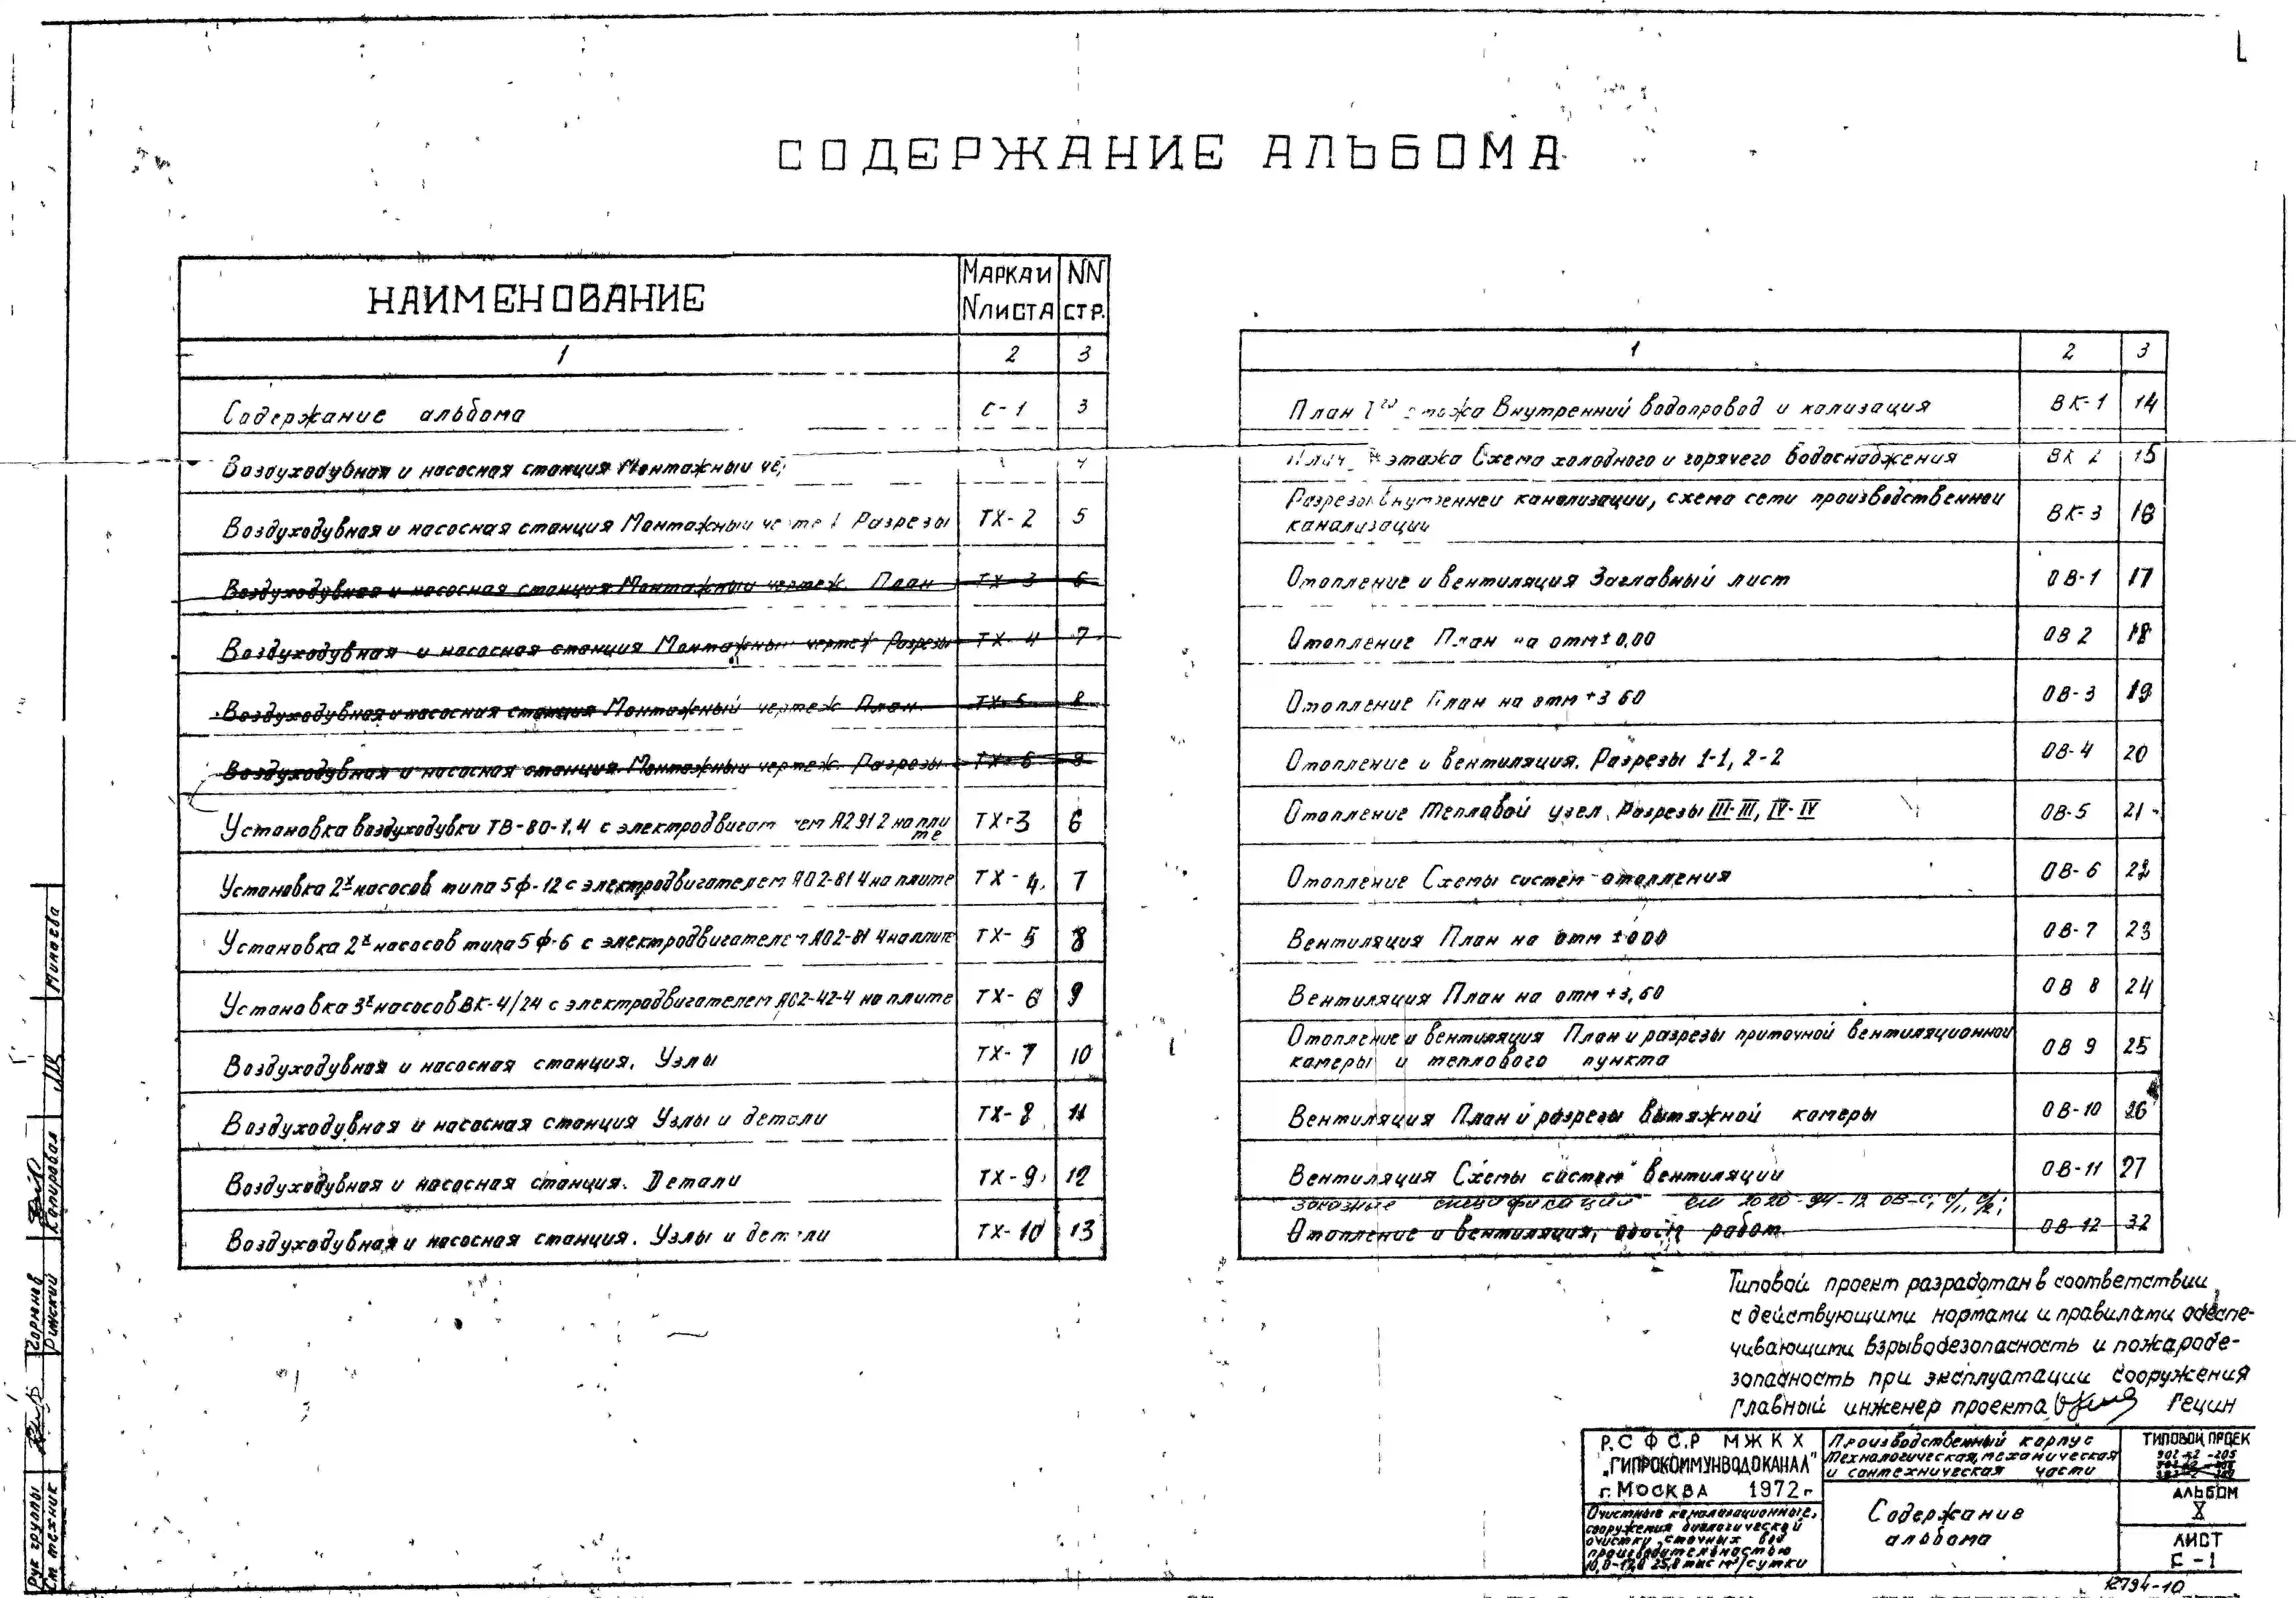 СОДЕРЖАНИЕ АЛЬБОМА
НАИМЕНОВАНИЕ МАРКА И N ЛИСТА NN СТР.
1 2 3
Содержание альбома С-1 3
Воздуходувная и насосная станция Монтажный 4
Воздуходувная и насосная станция Монтажный Разрезы ТХ-2 5
Воздуходувная и насосная станция Монтажный чертеж. План ТХ-3 6
Воздуходувная и насосная станция Монтажный чертеж Разрезы ТХ-4 7
Воздуходувная и насосная станция Монтажный чертеж План ТХ-5 8
Воздуходувная и насосная станция Монтажный чертеж. Разрезы ТХ-6 9
Установка воздуходувки ТВ-80-1,4 с А2 91 2 на плите ТХ-3 6
Установка 2х насосов типа 5ф-12 с электродвигателем А02-81 4 на плите ТХ-4. 7
Установка 2х насосов типа 5ф-6 с электродвигателем А02-81 4 на плите ТХ-5 8
Установка 3х насосов ВК-4/24 с электродвигателем А02-42-4 на плите ТХ-6 9
Воздуходувная и насосная станция. Узлы ТХ-7 10
Воздуходувная и насосная станция Узлы и детали ТХ-8 11
Воздуходувная и насосная станция. Детали ТХ-9 12
Воздуходувная и насосная станция. Узлы и детали ТХ-10 13
1 2 3
План этажа Внутренний водопровод и кализация ВК-1 14
этажа Схема холодного и горячего водоснабжения ВК 2 15
Разрезы внутренней канализации, схема сети производственной
канализации ВК-3 16
Отопление и вентиляция Заглавный лист ОВ-1 17
Отопление План на отм ±0,00 ОВ 2 18
Отопление План на отм +3 60 ОВ-3 19
Отопление и вентиляция. Разрезы 1-1, 2-2 ОВ-4 20
Отопление Тепловой узел. Разрезы III-III, IV-IV ОВ-5 21
Отопление Схемы систем отопления ОВ-6 22
Вентиляция План на отм ±000 ОВ-7 23
Вентиляция План на отм +3,60 ОВ 8 24
Отопление и вентиляция План и разрезы приточной вентиляционной
камеры и теплового пункта ОВ 9 25
Вентиляция План и разрезы вытяжной камеры ОВ-10 26
Вентиляция Схемы систем вентиляции ОВ-11 27
Заказные спецификации см
Отопление и вентиляция, работ ОВ-12 32
Типовой проект разработан в соответствии
с действующими нормами и правилами обеспе-
чивающими взрывобезопасность и пожаробе-
зопасность при эксплуатации сооружения
Главный инженер проекта Гецин
Р.С Ф С.Р М Ж К Х
„ГИПРОКОММУНВОДОКАНАЛ"
г. МОСКВА 1972г
Очистные канализационные,
сооружения биологической
очистки сточных вод
производительностью
тыс м³/сутки
Производственный корпус
Технологическая, механическая
и сантехническая части
Содержание
альбома
ТИПОВОЙ ПРОЕК
902-2-205
АЛЬБОМ
X
ЛИСТ
С-1
12794-10
Минаева
Копировал
Горюнов
Римский
Рук группы
Ст техник